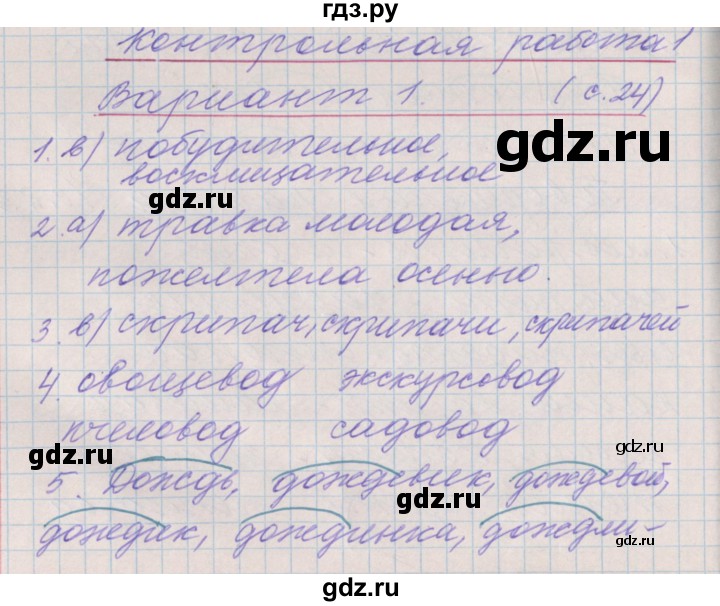 гдз.ру
Контрольная работа 1
Вариант 1. (с.24)
gdz.ru
1. в) побудительное,
восклицательное
gdz.ru
2. а) травка молодая,
gdz.ru
пожелтела осенью.
3. в) скрипач, скрипачи, скрипачей
4. овощевод экскурсовод
gdz.ru
пчеловод садовод
gdz.ru
gdz.ru
5. Дождь, дождевик, дождевой,
gdz.ru
дождик, дождинка, дождли-
gdz.ru
gdz.ru